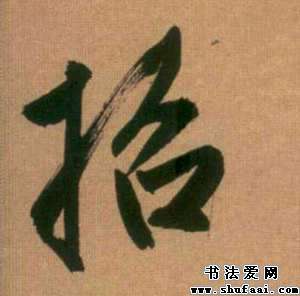 招
书法爱网
www.shufaai.com